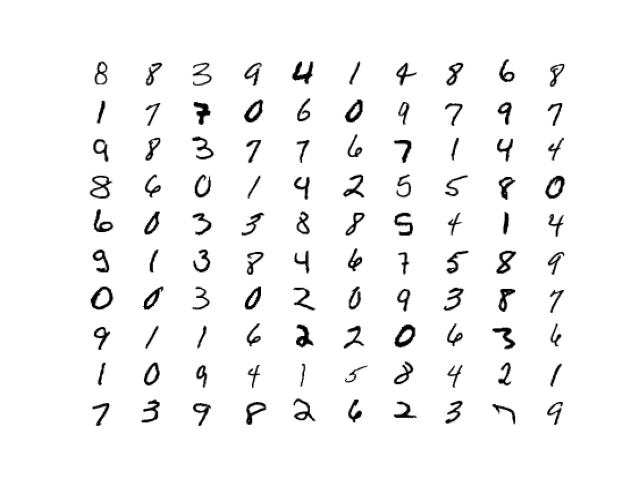 8 8 3 9 4 1 4 8 6 8
1 7 7 0 6 0 9 7 9 7
9 8 3 7 7 6 7 1 4 4
8 6 0 1 4 2 5 5 8 0
6 0 3 3 8 8 5 4 1 4
9 1 3 8 4 6 7 5 8 9
0 0 3 0 2 0 9 3 8 7
9 1 1 6 2 2 0 6 3 6
1 0 9 4 1 5 8 4 2 1
7 3 9 8 2 6 2 3 7 9